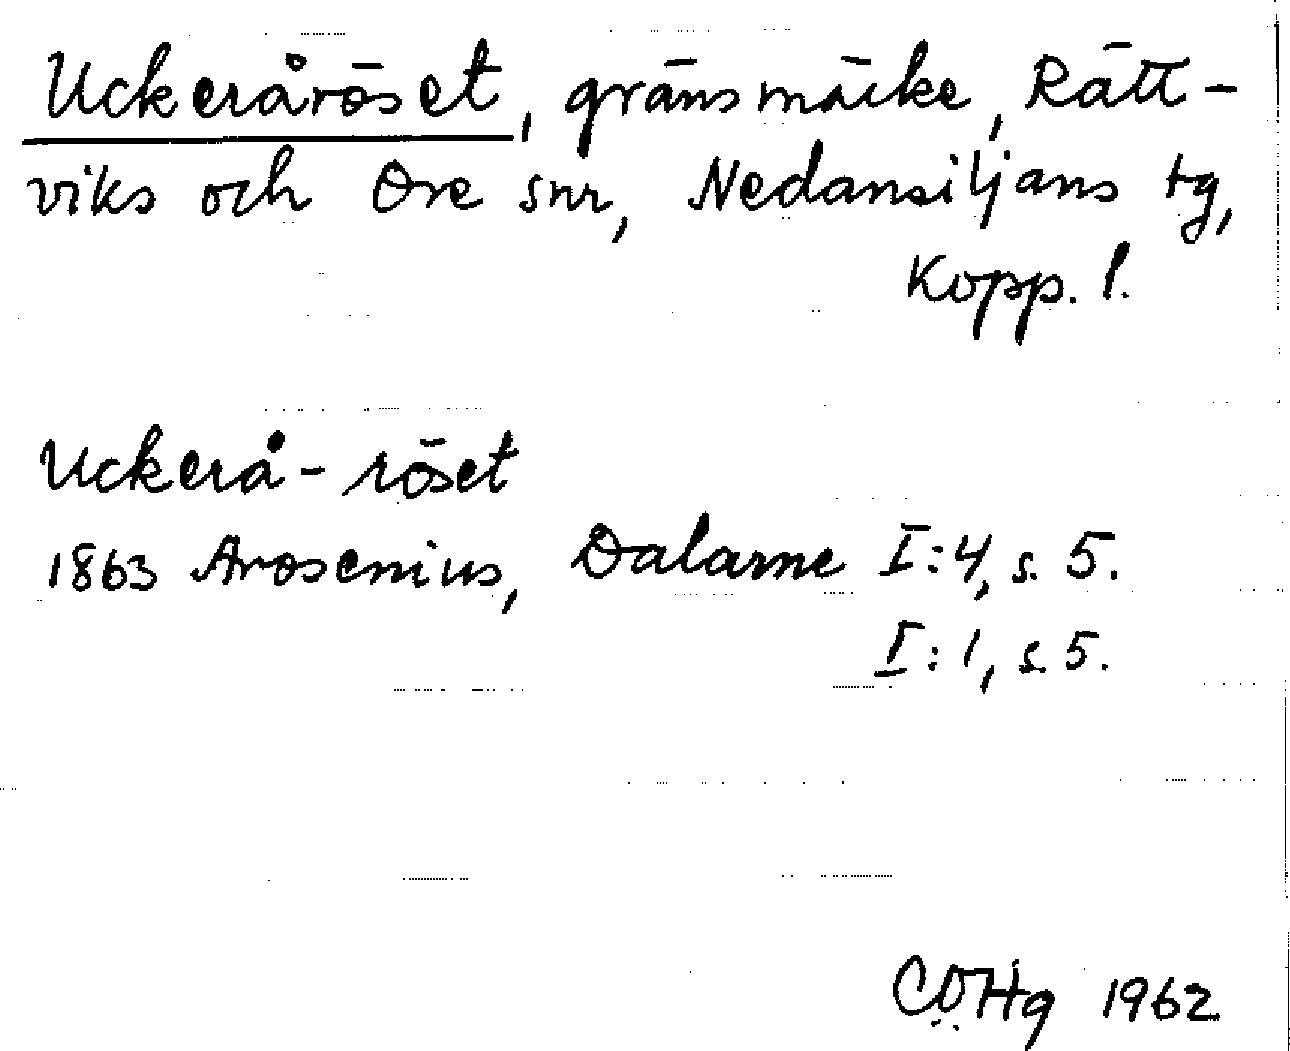 Uckeråröset, gränsmärke, Rätt-
viks och Ore snr, Nedansiljans tg,
Kopp. l.
Uckerå-röset
1863 Arosenius, Dalarne I:4, s. 5.
I:1, s. 5.
COHg 1962